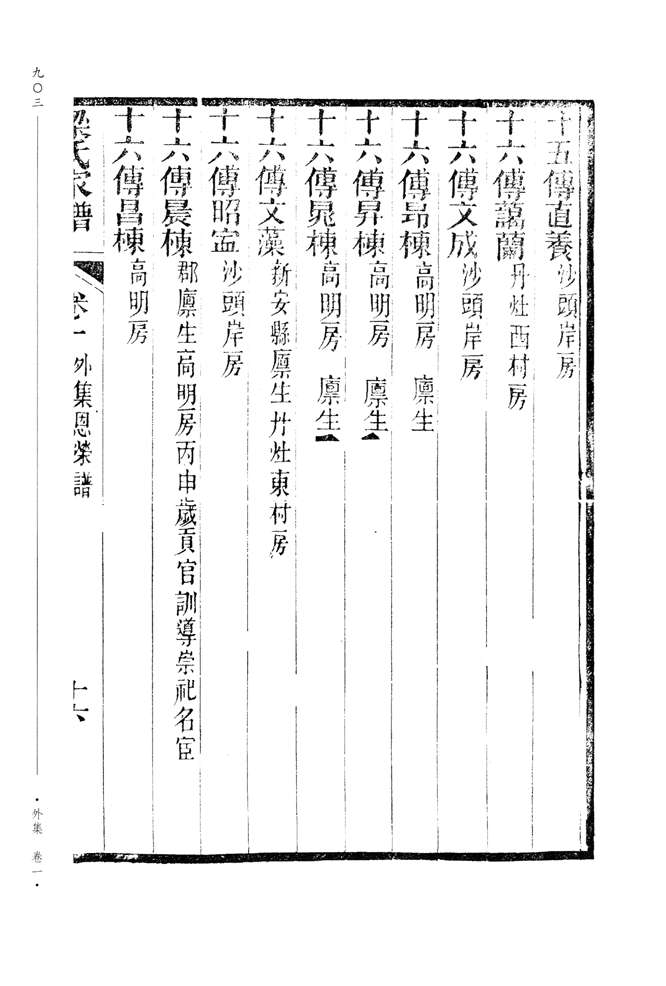 十五傳直養 沙頭岸房
十六傳藹蘭 丹灶西村房
十六傳文成 沙頭岸房
十六傳昂棟 高明房 廩生
十六傳昇棟 高明房 廩生
十六傳晁棟 高明房 廩生
十六傳文藻 新安縣廩生丹灶東村房
十六傳昭 沙頭岸房
十六傳晨棟 郡廩生高明房丙申歲貢官訓導崇祀名宦
十六傳昌棟 高明房
梁氏家譜 卷一 外集恩榮譜 十六
九〇三
·外集 卷一·